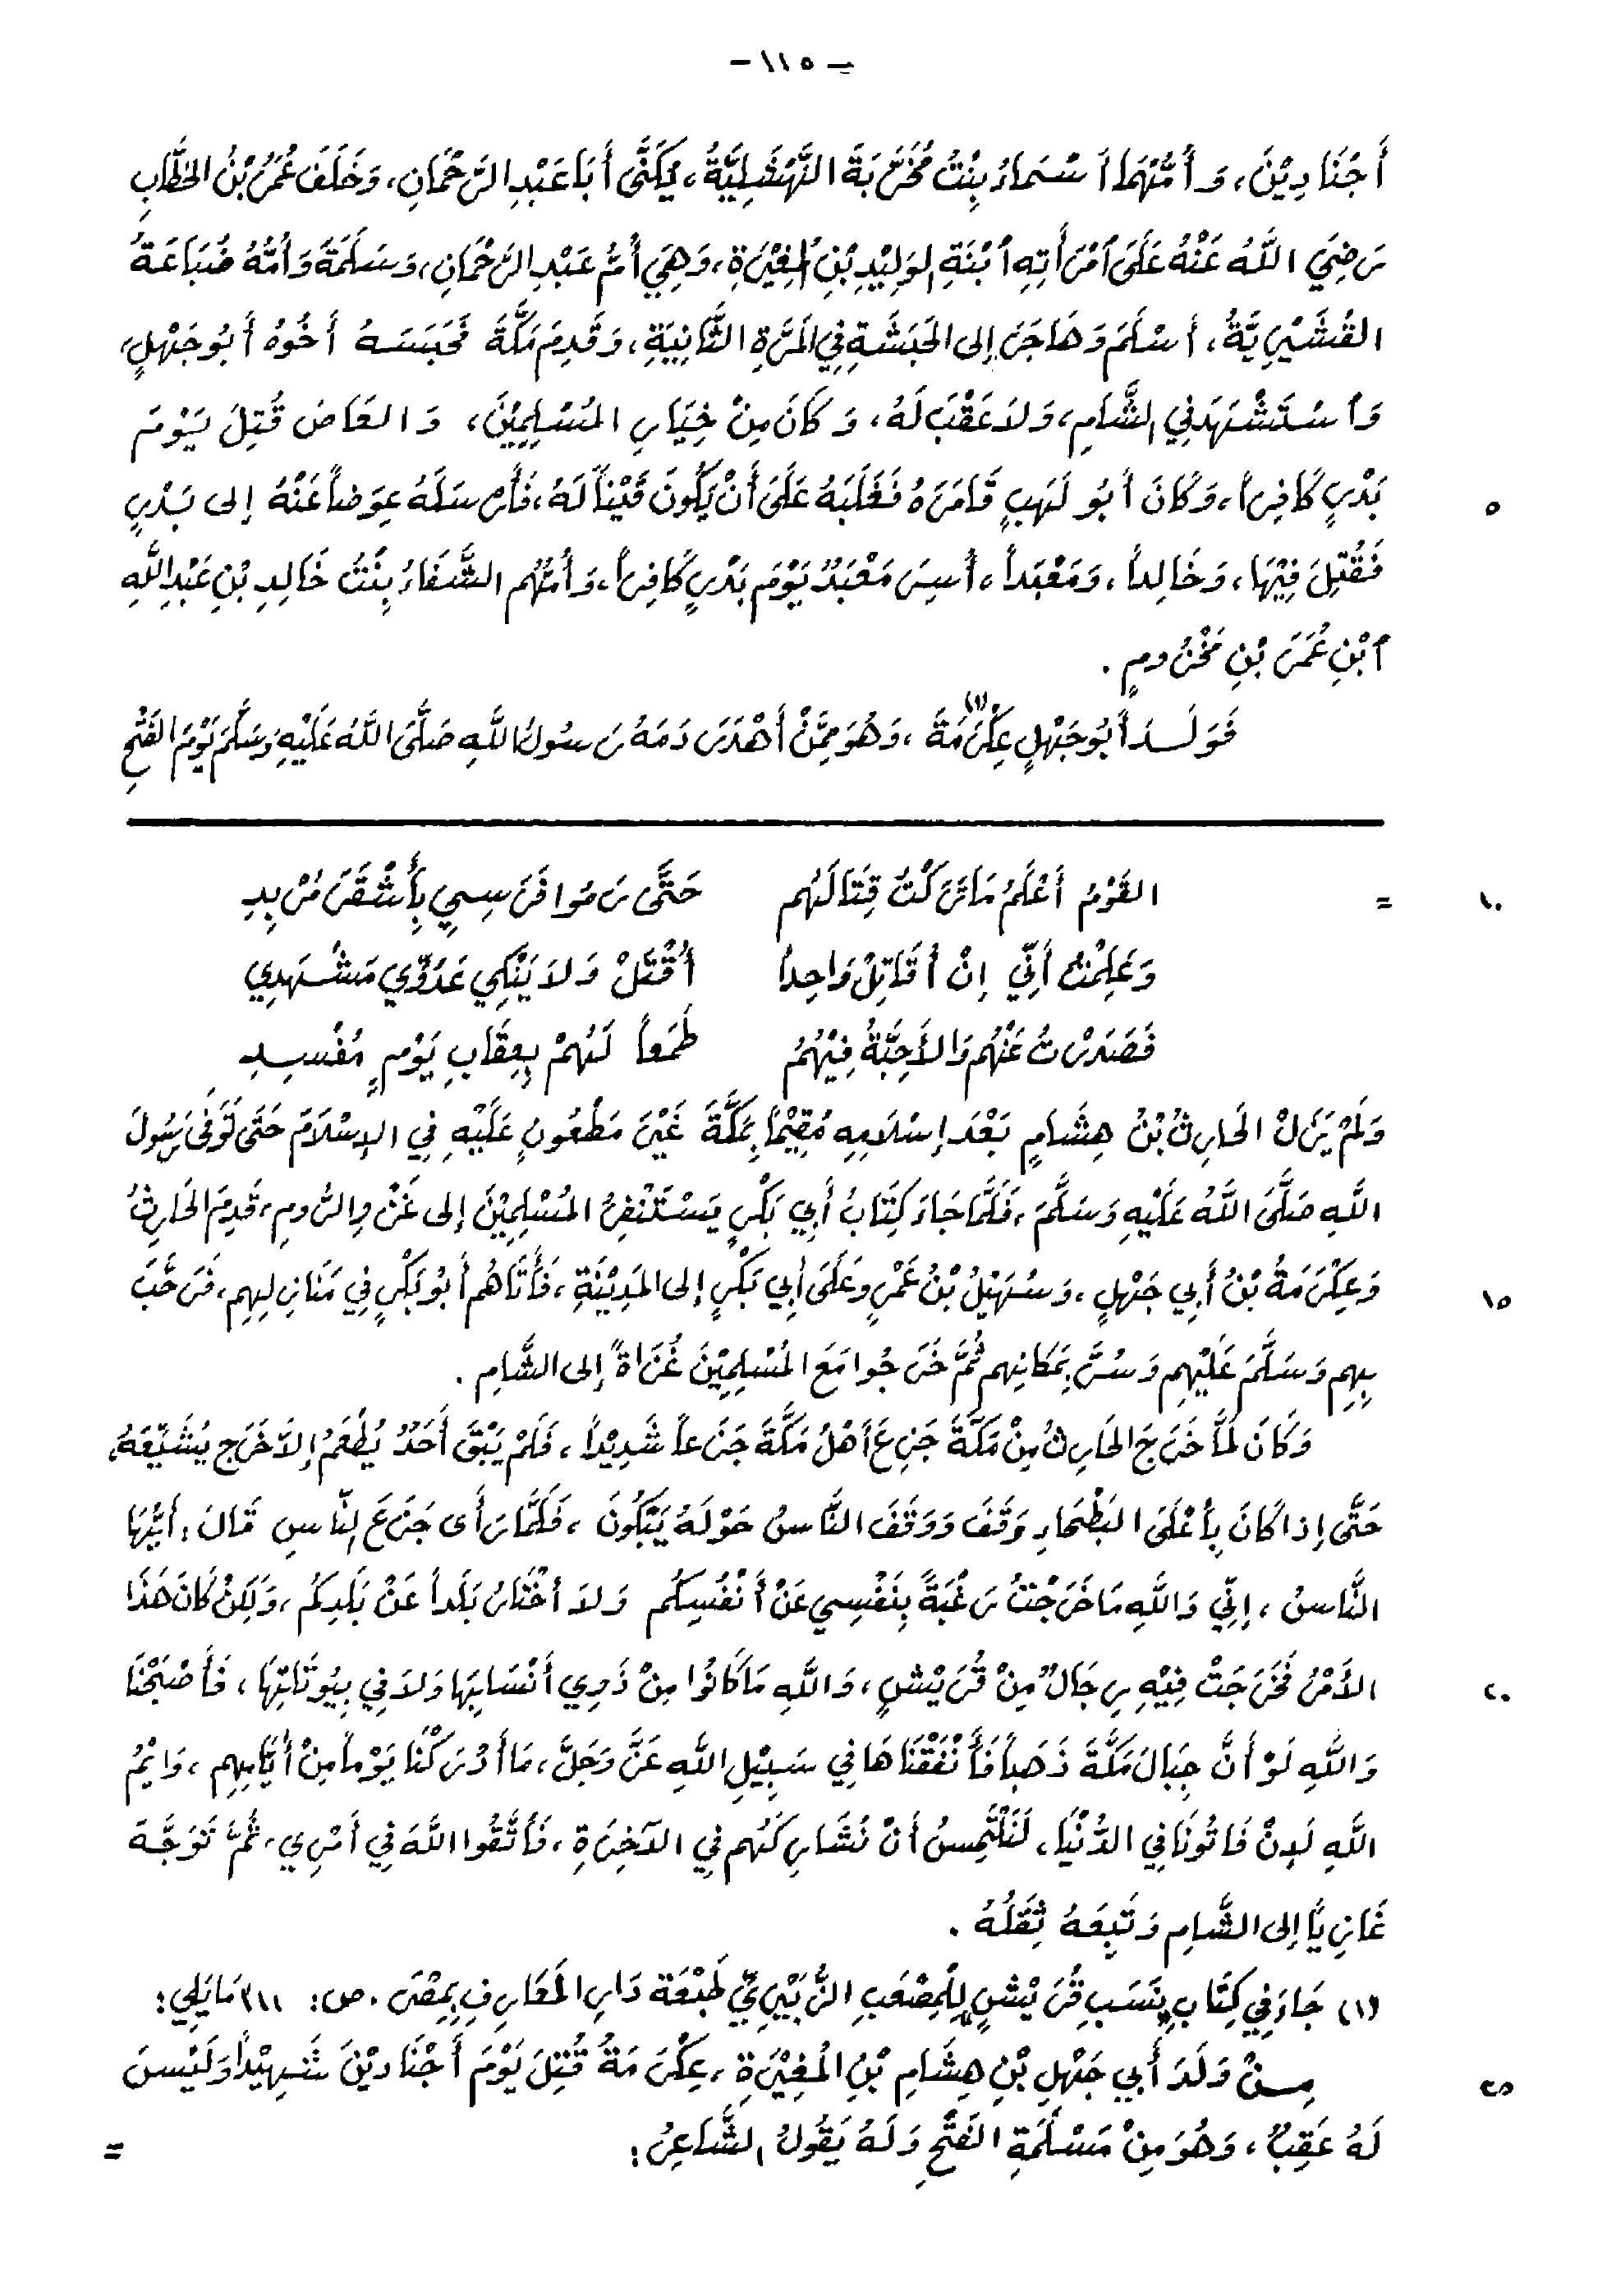 - ١١٥ -
أَجْنَادِيْنَ، وَأُمُّهُمَا أَسْمَاءُ بِنْتُ مُخَرِّبَةَ النَّهْشَلِيَّةُ، يُكَنَّى أَبَا عَبْدِ الرَّحْمَانِ، وَخَلَفَ عُمَرُ بْنُ الخَطَّابِ
رَضِيَ اللَّهُ عَنْهُ عَلَى ٱمْرَأَتِهِ ٱبْنَةِ الوَلِيْدِ بْنِ المُغِيْرَةِ، وَهِيَ أُمُّ عَبْدِ الرَّحْمَانِ، وَسَلَمَةَ وَأُمُّهُ ضُبَاعَةُ
القُشَيْرِيَّةُ، أَسْلَمَ وَهَاجَرَ إلى الحَبَشَةِ فِي المَرَّةِ الثَّانِيَةِ، وَقَدِمَ مَكَّةَ فَحَبَسَهُ أَخُوهُ أَبُو جَهْلٍ،
وَٱسْتُشْهِدَ فِي الشَّامِ، وَلاَ عَقْبَ لَهُ، وَكَانَ مِنْ خِيَارِ المُسْلِمِيْنَ، وَالعَاصَ قُتِلَ يَوْمَ
بَدْرٍ كَافِراً، وَكَانَ أبُو لَهَبٍ قَامَرَهُ فَغَلَبَهُ عَلَى أَنْ يَكُونَ قَيْناً لَهُ، فَأَرْسَلَهُ عِوَضاً عَنْهُ إلى بَدْرٍ
٥
فَقُتِلَ فِيْهَا، وَخَالِداً، وَمَعْبَداً، أُسِرَ مَعْبَدٌ يَوْمَ بَدْرٍ كَافِراً، وَأُمُّهُم الشَّفَاءُ بِنْتُ خَالِدِ بْنِ عَبْدِ اللَّهِ
ٱبْنِ عُمَرَ بْنِ مَخْزُومٍ .
فَوَلَدَ أَبُو جَهْلٍ عِكْرِمَةَ(١)، وَهُوَ مِمَّنْ أَهْدَرَ دَمَهُ رَسُولُ اللَّهِ صَلَّى اللَّهُ عَلَيْهِ وَسَلَّمَ يَوْمَ الفَتْحِ
= القَوْمُ أَعْلَمُ مَا تَرَكْتُ قِتَالَهُم حَتَّى رَمَوا فَرَسِي بِأَشْقَرَ مُزْبِدِ
١٠
وَعَلِمْتُ أَنِّي إِنْ أُقَاتِلْ وَاحِداً أُقْتَلْ وَلاَ يَنْكِي عَدُوِّي مَشْهَدِي
فَصَدَرْتُ عَنْهُم وَالأَحِبَّةُ فِيْهُمُ طَمَعاً لَهُمْ بِعِقَابِ يَوْمٍ مُفْسِدِ
وَلَمْ يَزَلْ الحَارِثُ بْنُ هِشَامٍ بَعْدَ إِسْلاَمِهِ مُقِيْمًا بِمَكَّةَ غَيْرَ مَطْعُونٍ عَلَيْهِ فِي الإِسْلاَمِ حَتَّى تُوَفِّىَ رَسُولَ
اللَّهِ صَلَّى اللَّهُ عَلَيْهِ وَسَلَّمَ، فَلَمَّا جَاءَ كِتَابُ أَبِي بَكْرٍ يَسْتَنْفِرُ المُسْلِمِيْنَ إلى غَزْوِ الرُّومِ، قَدِمَ الحَارِثُ
وَعِكْرِمَةُ بْنُ أَبِي جَهْلٍ، وَسُهَيْلُ بْنُ عَمْرٍو عَلَى أَبِي بَكْرٍ إلى المَدِيْنَةِ، فَأَتَاهُم أَبُو بَكْرٍ فِي مَنَازِلِهِم، فَرَحَّبَ
١٥
بِهِم وَسَلَّمَ عَلَيْهِم وَسُرَّ بِمَكَانِهِم ثُمَّ خَرَجُوا مَعَ المُسْلِمِيْنَ غُزَاةً إلى الشَّامِ .
وَكَانَ لَمَّا خَرَجَ الحَارِثُ مِنْ مَكَّةَ جَزِعَ أَهْلُ مَكَّةَ جَزَعاً شَدِيْداً، فَلَمْ يَبْقَ أَحَدٌ يُطْعَمُ إِلاَّ خَرَجَ يُشَيِّعَهُ،
حَتَّى إذا كَانَ بِأَعْلَى البَطْحَاءِ وَقَفَ وَوَقَفَ النَّاسُ حَوْلَهُ يَبْكُونَ، فَلَمَّا رَأَى جَزَعَ النَّاسِ قَالَ: أَيُّهَا
النَّاسُ، إِنِّي وَاللَّهِ مَا خَرَجْتُ رَغْبَةً بِنَفْسِي عَنْ أَنْفُسِكُم وَلاَ أَخْتَارُ بَلَداً عَنْ بَلَدِكُم، وَلَكِنْ كَانَ هَذَا
الأَمْرُ فَخَرَجَتْ فِيْهِ رِجَالٌ مِنْ قُرَيْشٍ، وَاللَّهِ مَا كَانُوا مِنْ ذَوِي أَنْسَابِهَا وَلاَ فِي بِيُوتَاتِهَا، فَأَصْبَحْنَا
٢٠
وَاللَّهِ لَوْ أَنَّ جِبَالَ مَكَّةَ ذَهَباً فَأَنْفَقْنَاهَا فِي سَبِيْلِ اللَّهِ عَزَّ وَجَلَّ، مَا أَدْرَكْنَا يَوْماً مِنْ أَيَّامِهِم، وَايْمُ
اللَّهِ لَئِنْ فَاتُونَا فِي الدُّنْيَا، لَنَلْتَمِسُ أَنْ نُشَارِكَهُم فِي الآخِرَةِ، فَاتَّقُوا اللَّهَ فِي أَمْرِي، ثُمَّ تَوَجَّهَ
غَازِيًا إلى الشَّامِ وَتَبِعَهُ ثِقَلُهُ .
(١) جَاءَ فِي كِتَابِ نَسَبِ قُرَيْشٍ لِلْمِصْعَبِ الزُّبَيْرِيِّ طَبْعَة دَارِ المَعَارِفِ بِمِصْرَ . ص: ٣١١ مَا يَلِي:
مِنْ وَلَدَ أَبِي جَهْلِ بْنِ هِشَامِ بْنِ المُغِيْرَةِ، عِكْرِمَةُ قُتِلَ يَوْمَ أَجْنَادِيْنَ شَهِيْداً وَلَيْسَ
٢٥
لَهُ عَقِبٌ، وَهُوَ مِنْ مَسْلَمَةِ الفَتْحِ وَلَهُ يَقُولُ الشَّاعِرُ: =